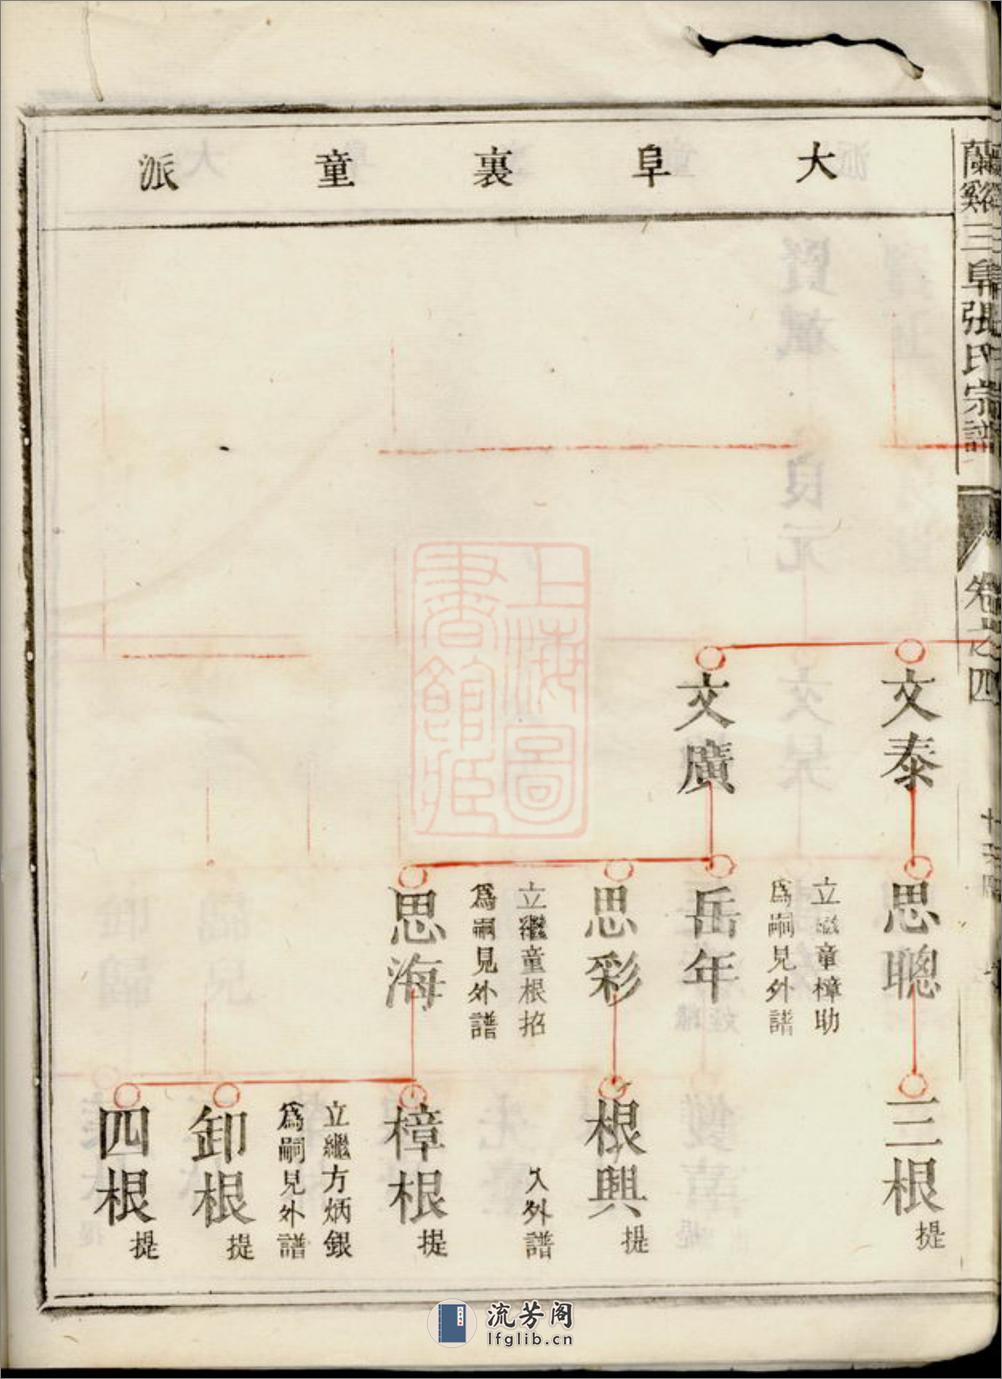 大阜裏童派
蘭谿三阜張氏宗譜
卷之四
文泰
文廣
思聰
立繼童樟助
為嗣見外譜
岳年
思彩
立繼童根招
為嗣見外譜
思海
三根
提
根興
提
入外譜
樟根
提
立繼方炳銀
為嗣見外譜
卸根
提
四根
提
上海圖書館藏
流芳阁
lfglib.cn